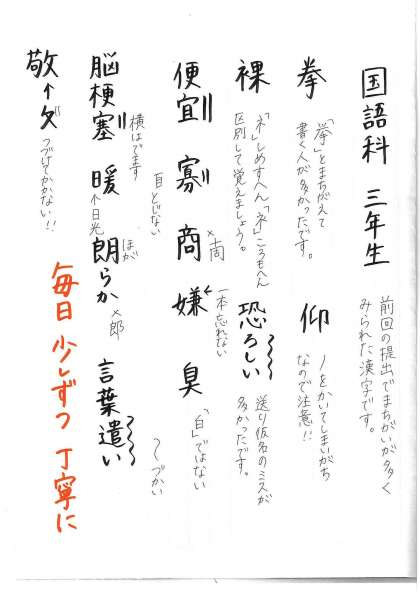 国語科 三年生
前回の提出でまちがいが多く
みられた漢字です。
拳
「挙」とまちがえて
書く人が多かったです。
仰
ノをかいてしまいがち
なので注意!!
裸
「ネ」しめすへん「衤」ころもへん
区別して覚えましょう。
恐ろしい
送り仮名のミスが
多かったです。
便宜
寡
商
×啇
嫌
←一本忘れない
臭
「白」ではない
脳梗塞
横はでます
暖
目とじない
↑日光
朗らか
ほが
×郎
言葉遣い
〜づかい
敬
↑
攵
つづけてかかない!!
毎日 少しずつ 丁寧に